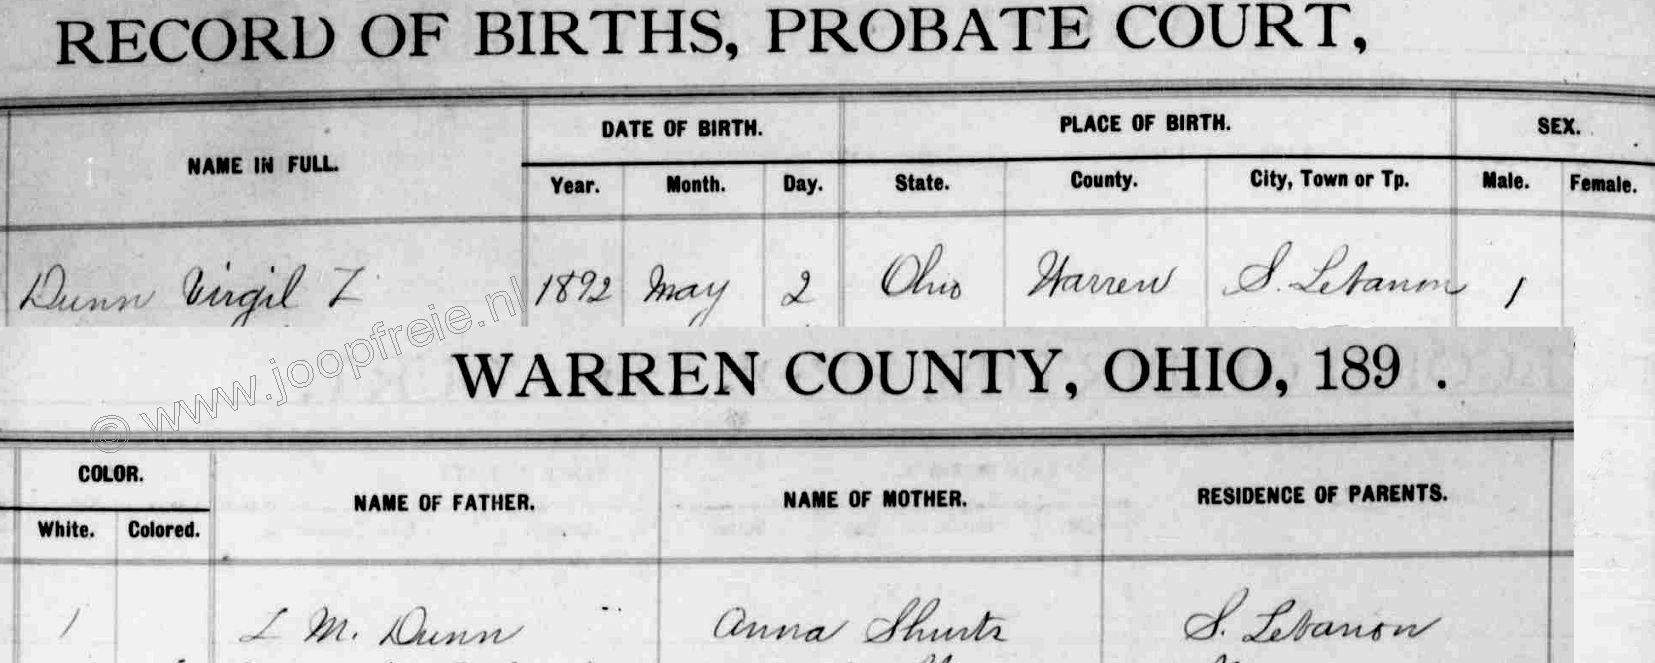 RECORD OF BIRTHS, PROBATE COURT,
NAME IN FULL. DATE OF BIRTH. PLACE OF BIRTH. SEX.
Year. Month. Day. State. County. City, Town or Tp. Male. Female.
Dunn Virgil Z 1892 May 2 Ohio Warren S. Lebanon 1
© www.joopfreie.nl
WARREN COUNTY, OHIO, 189 .
COLOR. NAME OF FATHER. NAME OF MOTHER. RESIDENCE OF PARENTS.
White. Colored.
1 Z M. Dunn Anna Shurts S. Lebanon